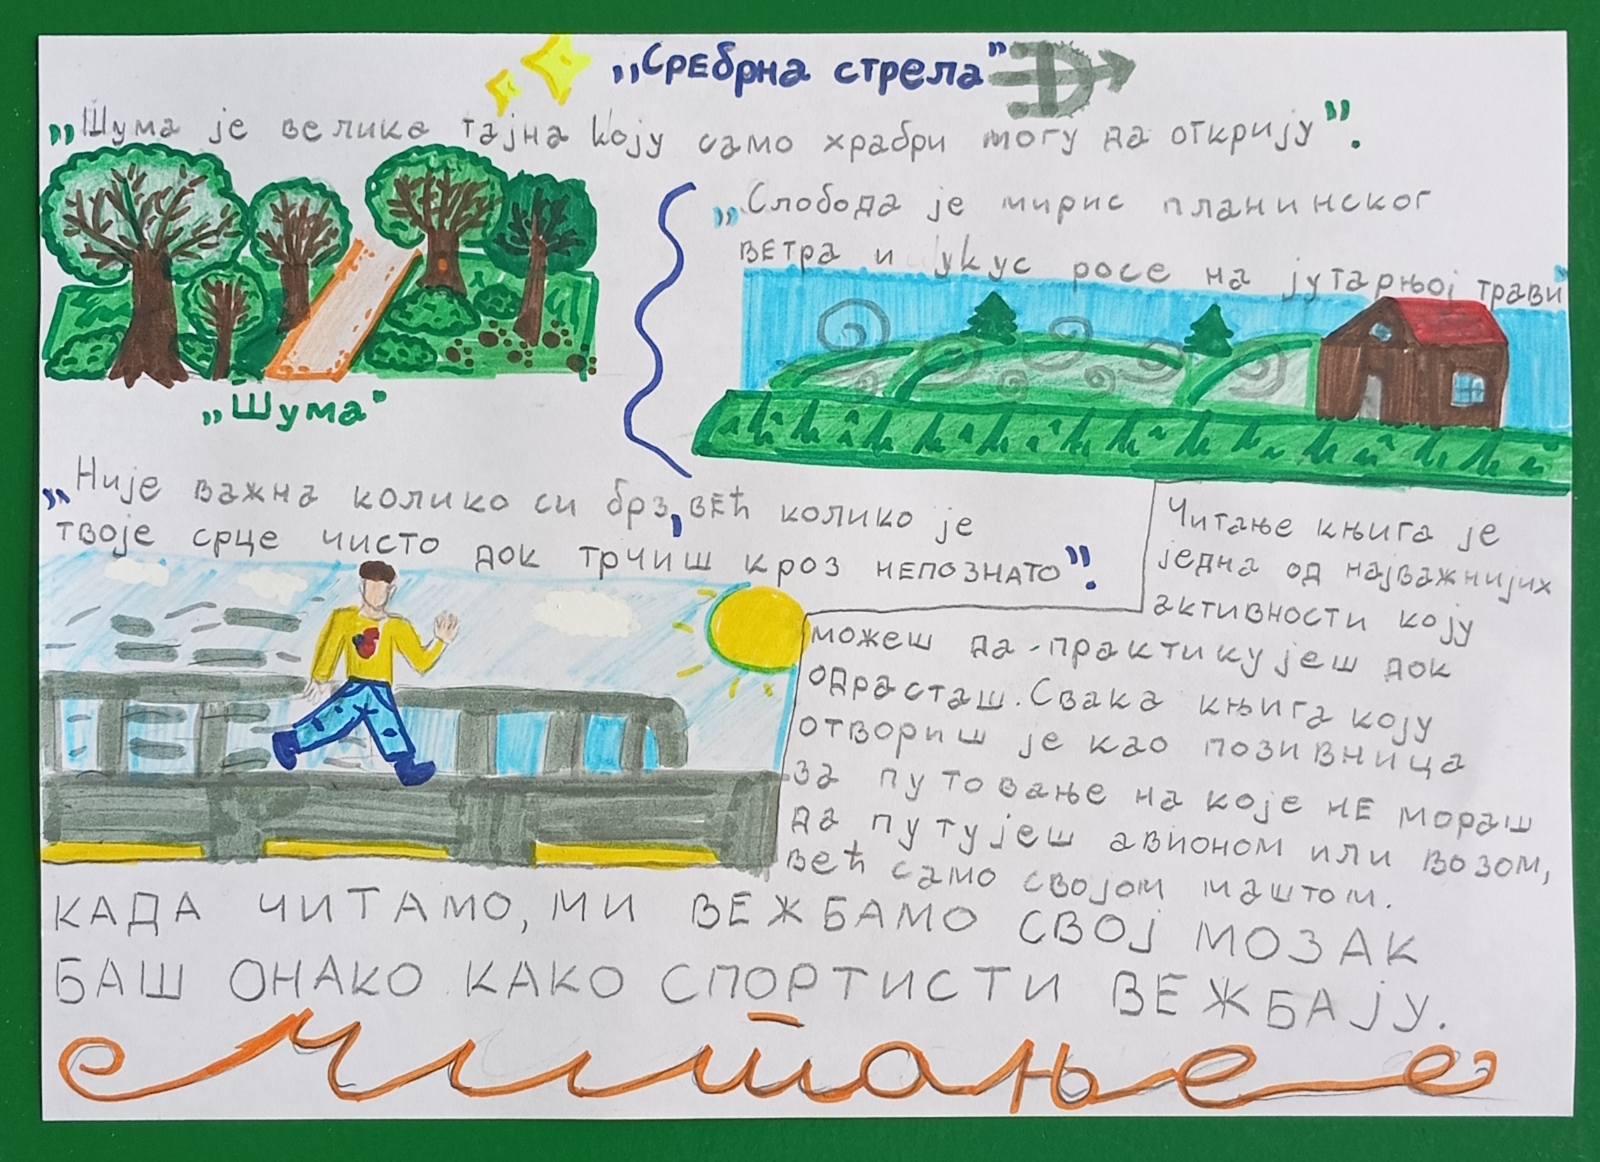 „Сребрна стрела”
„Шума је велика тајна коју само храбри могу да открију”.
„Слобода је мирис планинског
ветра и укус росе на јутарњој трави”
„Шума”
„Није важна колико си брз, већ колико је
твоје срце чисто док трчиш кроз непознато”.
Читање књига је
једна од најважнијих
активности коју
можеш да практикујеш док
одрасташ. Свака књига коју
отвориш је као позивница
за путовање на које не мораш
да путујеш авионом или возом,
већ само својом маштом.
КАДА ЧИТАМО, МИ ВЕЖБАМО СВОЈ МОЗАК
БАШ ОНАКО КАКО СПОРТИСТИ ВЕЖБАЈУ.
Читање